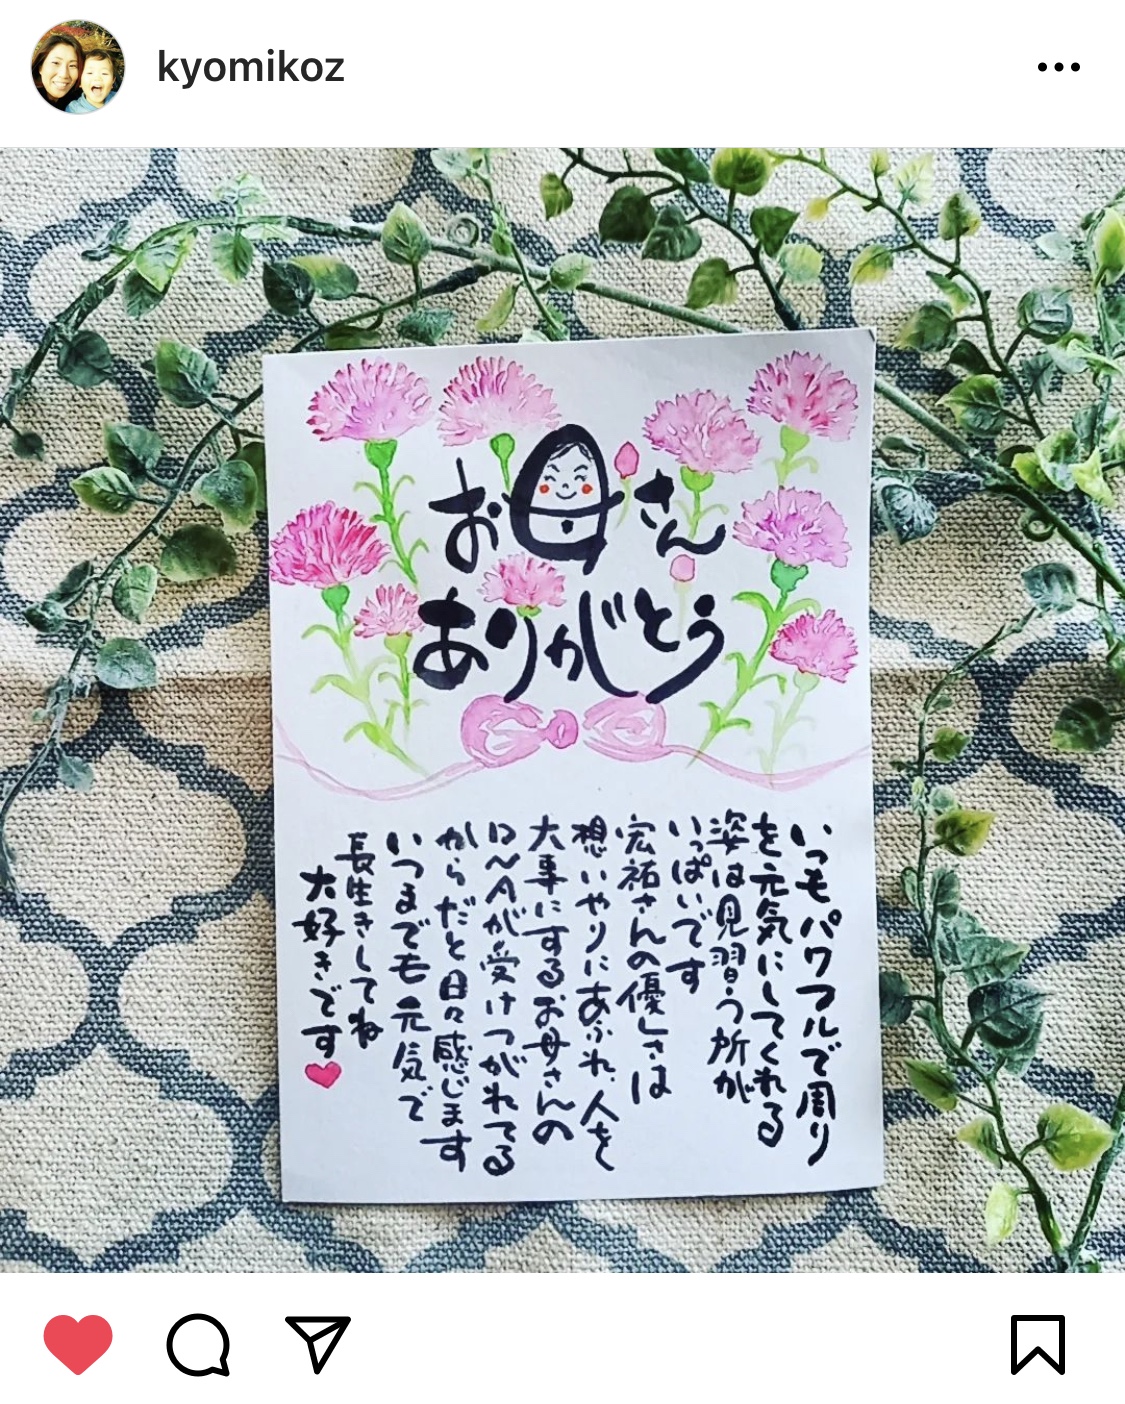 kyomikoz
お母さん
ありがとう
いつもパワフルで周り
を元気にしてくれる
姿は見習う所が
いっぱいです
宏祐さんの優しさは
想いやりにあふれ、人を
大事にするお母さんの
DNAが受けつがれてる
からだと日々感じます
いつまでも元気で
長生きしてね
大好きです